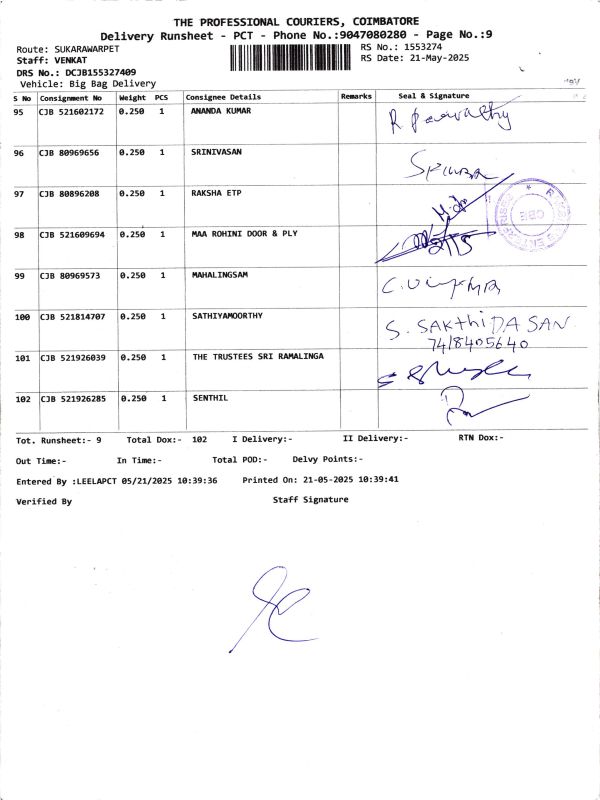 THE PROFESSIONAL COURIERS, COIMBATORE
Delivery Runsheet - PCT - Phone No.:9047080280 - Page No.:9
Route: SUKARAWARPET
RS No.: 1553274
Staff: VENKAT
RS Date: 21-May-2025
DRS No.: DCJB155327409
Vehicle: Big Bag Delivery
S No Consignment No Weight PCS Consignee Details Remarks Seal & Signature
95 CJB 521602172 0.250 1 ANANDA KUMAR
96 CJB 80969656 0.250 1 SRINIVASAN
97 CJB 80896208 0.250 1 RAKSHA ETP
98 CJB 521609694 0.250 1 MAA ROHINI DOOR & PLY
99 CJB 80969573 0.250 1 MAHALINGSAM
100 CJB 521814707 0.250 1 SATHIYAMOORTHY S. SAKthiDASAN
7418405640
101 CJB 521926039 0.250 1 THE TRUSTEES SRI RAMALINGA
102 CJB 521926285 0.250 1 SENTHIL
Tot. Runsheet:- 9 Total Dox:- 102 I Delivery:- II Delivery:- RTN Dox:-
Out Time:- In Time:- Total POD:- Delvy Points:-
Entered By :LEELAPCT 05/21/2025 10:39:36 Printed On: 21-05-2025 10:39:41
Verified By Staff Signature